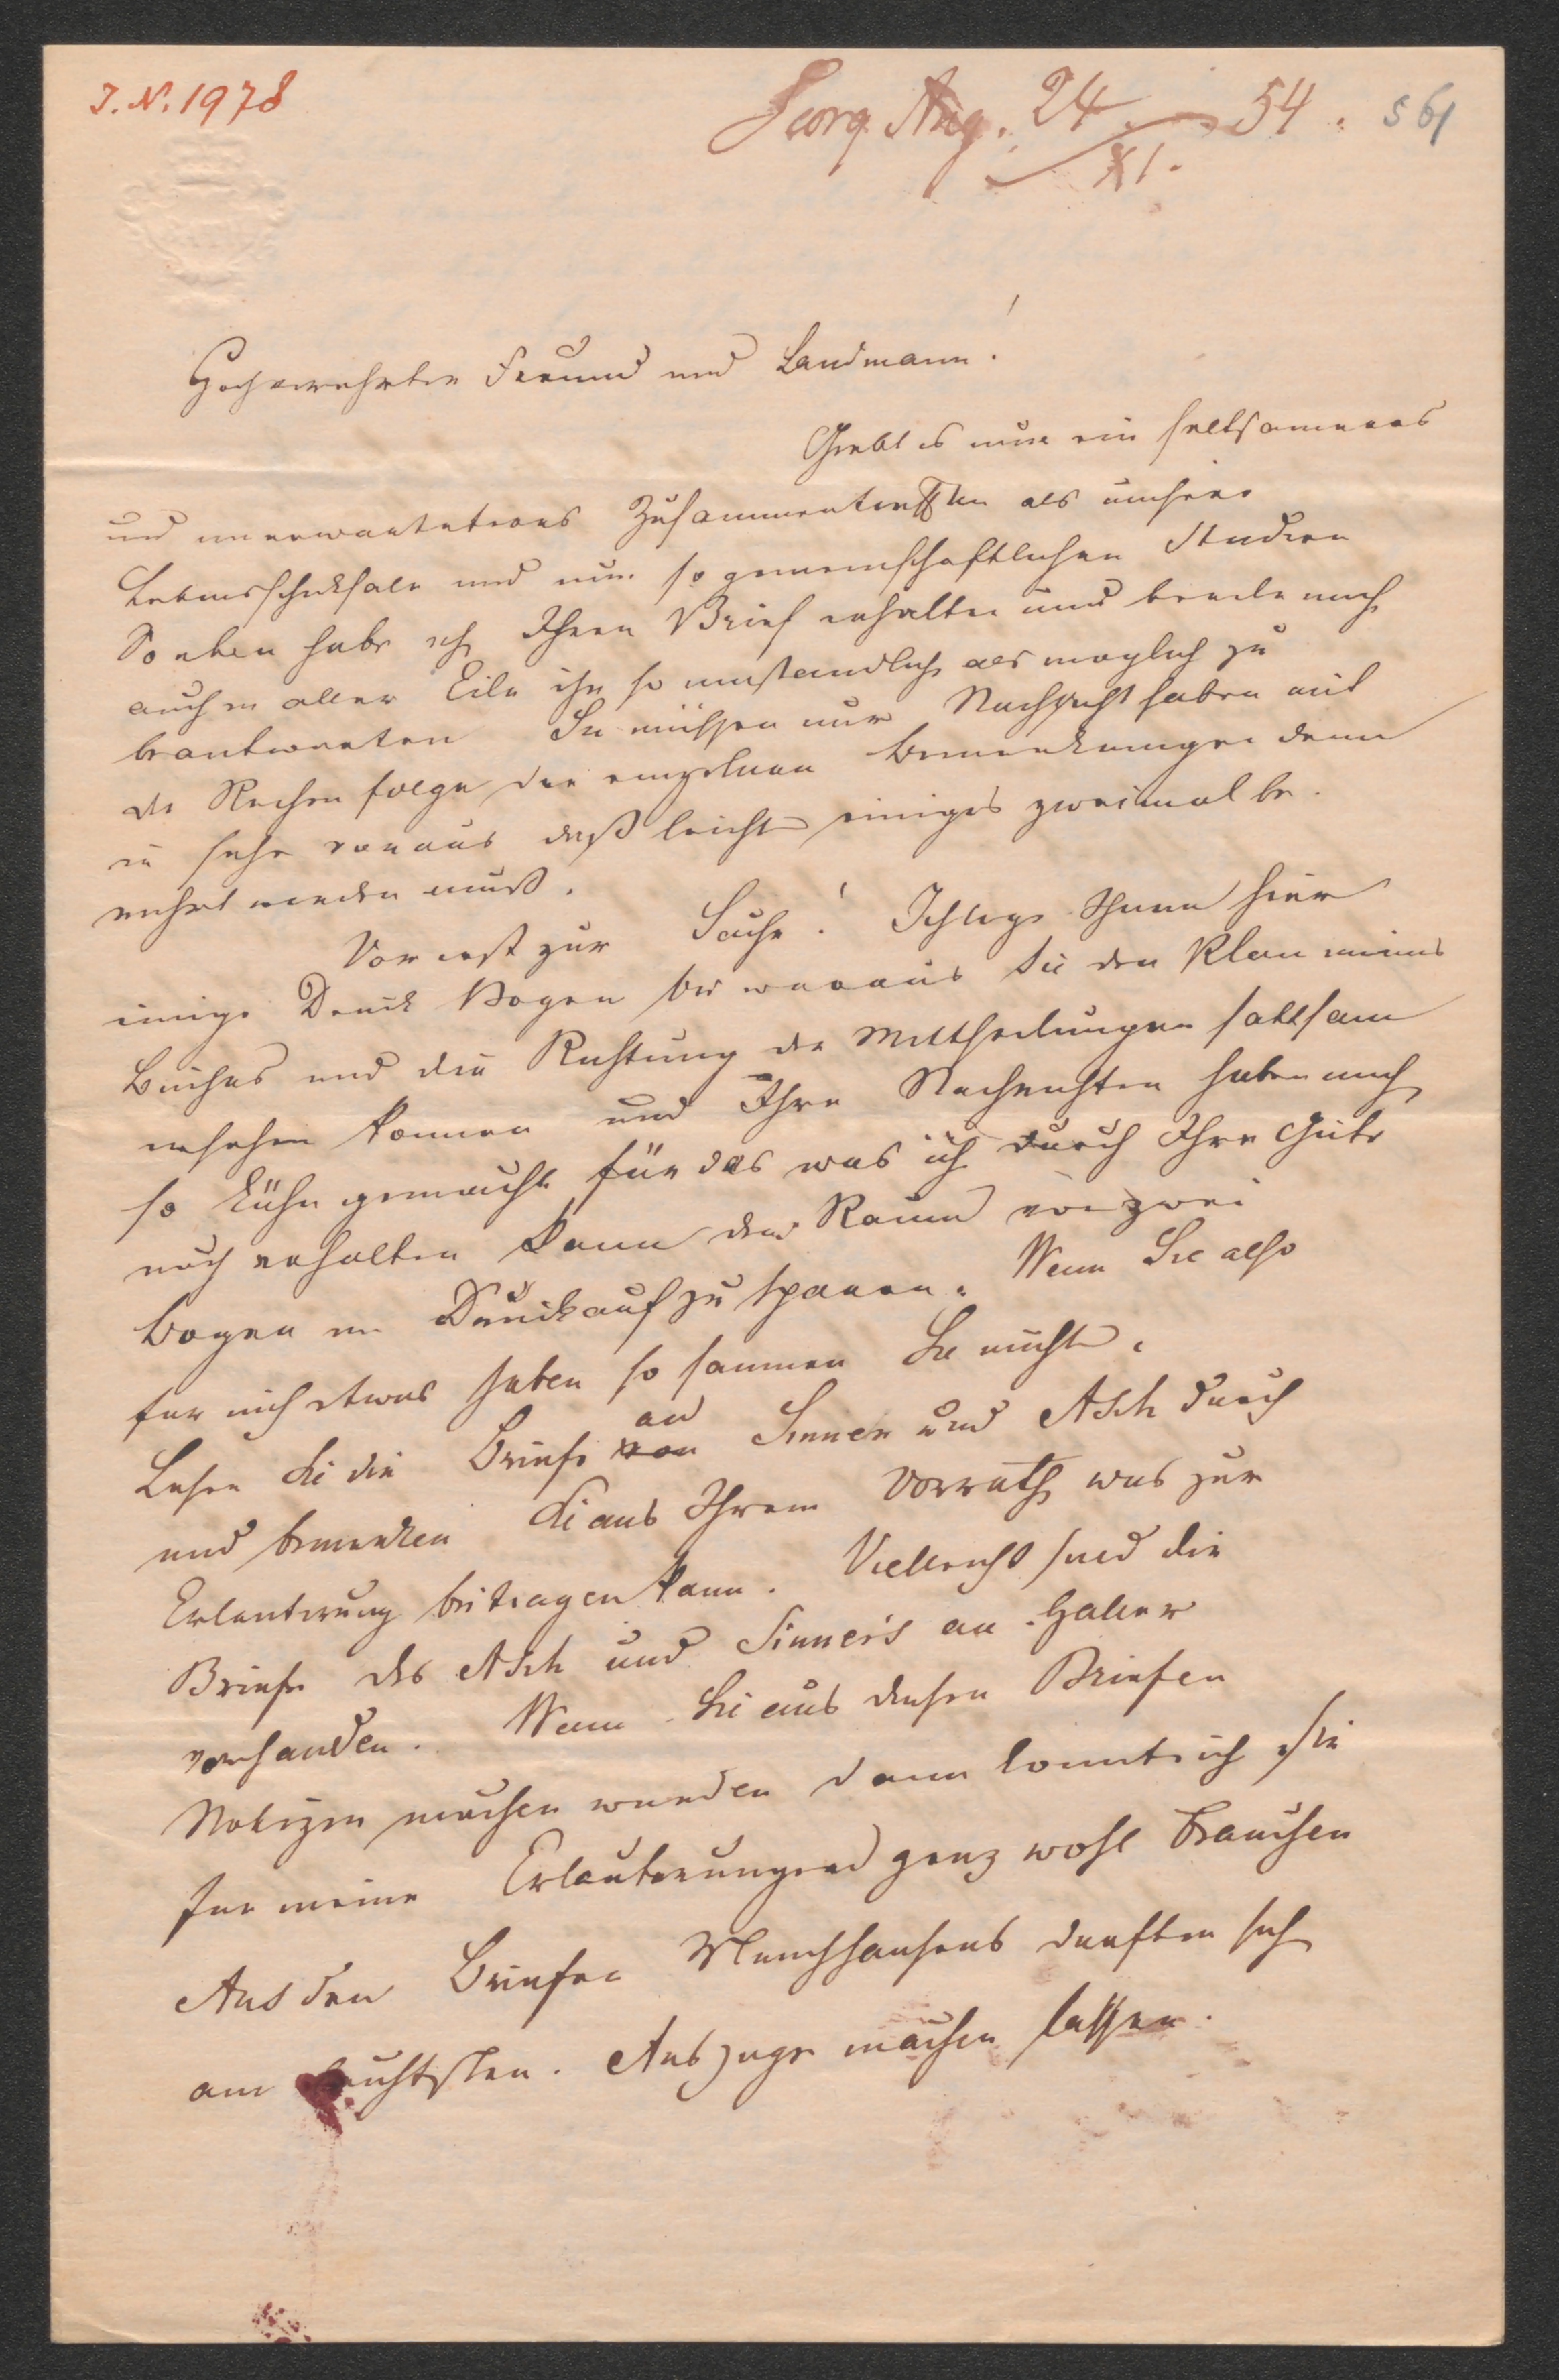 J. N. 1978
Georg Aug. 24 54. 561
XI.
Hochverehrter Freund und Landmann!
Giebt es nun ein seltsameres
und unerwarteteres Zusammentreffen als unsere
Lebensschicksale und nun so gemeinschaftlichen Studien
So eben habe ich Ihren Brief erhalten und beeile mich
auch in aller Eile ihn so umstandlich als moglich zu
beantworten Sie müssen nur Nachsicht haben mit
der Reihenfolge der einzelnen Bemerkungen denn
ich sehe voraus daß leicht einiges zweimal be-
rührt werden muß.
Vorerst zur Sache! Ich lege Ihnen hier
einige Druck Bogen bei woraus Sie den Plan meines
Buches und die Richtung der Mittheilungen sattsam
ersehen konnen und Ihre Nachrichten haben mich
so kühn gemacht für das was ich durch Ihre Güte
noch erhalten kann den Raum von zwei
Bogen im Druck aufzusparen. Wenn Sie also
fur mich etwas haben so saumen Sie nicht.
Lesen Sie die Briefe von an Sinner und Asch durch
und bemerken Sie aus Ihrem Vorrath was zur
Erlauterung beitragen kann. Vielleicht sind die
Briefe des Asch und Sinner's an Haller
vorhanden. Wenn Sie aus diesen Briefen
Notizen machen wurden dann konnte ich sie
fur meine Erlauterungen ganz wohl brauchen
Aus den Briefen Munchhausens durften sich
am leichtsten. Auszuge machen lassen.